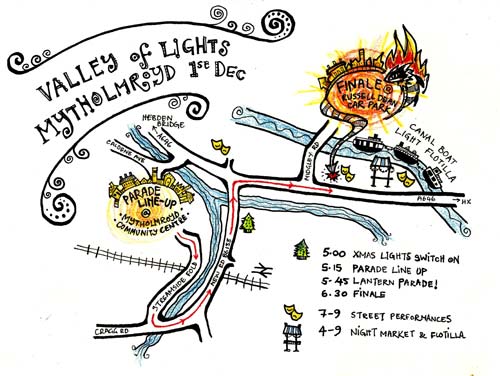 VALLEY of LIGHTS
MYTHOLMROYD 1st DEC
FINALE @
RUSSELL DEAN
CAR PARK
HEBDEN
BRIDGE
A646
CALDENE AVE
MIDGLEY RD
CANAL BOAT
LIGHT FLOTILLA
PARADE
LINE-UP
@
MYTHOLMROYD
COMMUNITY CENTRE
A646
HX
STREAMSIDE FOLD
NEW RD
CRAGG RD
5.00 XMAS LIGHTS SWITCH ON
5.15 PARADE LINE UP
5-45 LANTERN PARADE!
6.30 FINALE
7-9 STREET PERFORMANCES
4-9 NIGHT MARKET & FLOTILLA